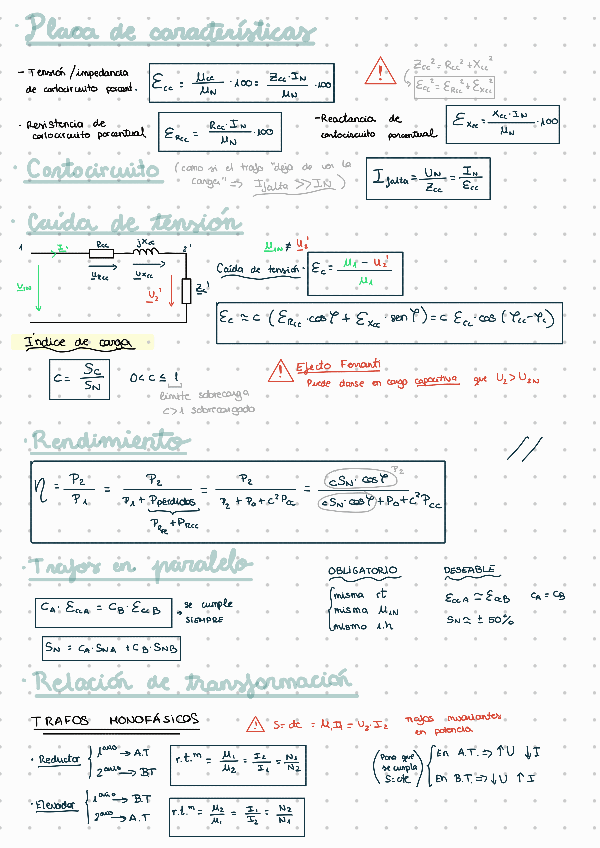 · Placa de características
- Tensión/impedancia de cortocircuito porcent.
Ɛcc = μcc/μN · 100 = Zcc·IN/μN · 100
Zcc² = Rcc² + Xcc²
Ɛcc² = ƐRcc² + ƐXcc²
· Resistencia de cortocircuito porcentual
ƐRcc = Rcc·IN/μN · 100
- Reactancia de cortocircuito porcentual
ƐXcc = Xcc·IN/μN · 100
· Cortocircuito
(como si el trafo "deja de ver la carga" ⇒ Ifalta >> IN)
Ifalta = UN/Zcc = IN/Ɛcc
· Caída de tensión
1 I2' Rcc jXcc 2'
U1N URcc UXcc U2' Z2'
μ1N ≠ U2'
Caída de tensión· Ɛc = μ1 - U2'/μ1
Ɛc ≃ c (ƐRcc·cosφ + ƐXcc·senφ) = c Ɛcc·cos(φcc-φc)
Índice de carga
C = Sc/SN
0<C≤1
límite sobrecarga
C>1 sobrecargado
! Efecto Ferranti
Puede darse en carga capacitiva que U2>U2N
· Rendimiento
η = P2/P1 = P2/P1+Ppérdidas = P2/P2+P0+C²Pcc = cSN·cosφ/cSN·cosφ+P0+C²Pcc
P2
PFe+PRcc
· Trafos en paralelo
CA·ƐccA = CB·ƐccB
→ se cumple SIEMPRE
SN = CA·SNA + CB·SNB
OBLIGATORIO
misma rt
misma μ1N
mismo i.h
DESEABLE
ƐccA ≃ ƐccB CA = CB
SN ≃ ± 50%
· Relación de transformación
TRAFOS MONOFÁSICOS
! S=cte = μ1I1 = U2·I2 trafos invariantes en potencia
· Reductor
1ario → A.T
2ario → BT
r.t.m = μ1/μ2 = I2/I1 = N1/N2
(Para que se cumpla S=cte)
En A.T. ⇒ ↑U ↓I
En B.T. ⇒ ↓U ↑I
· Elevador
1ario → B.T
2ario → A.T
r.t.m = μ2/μ1 = I1/I2 = N2/N1